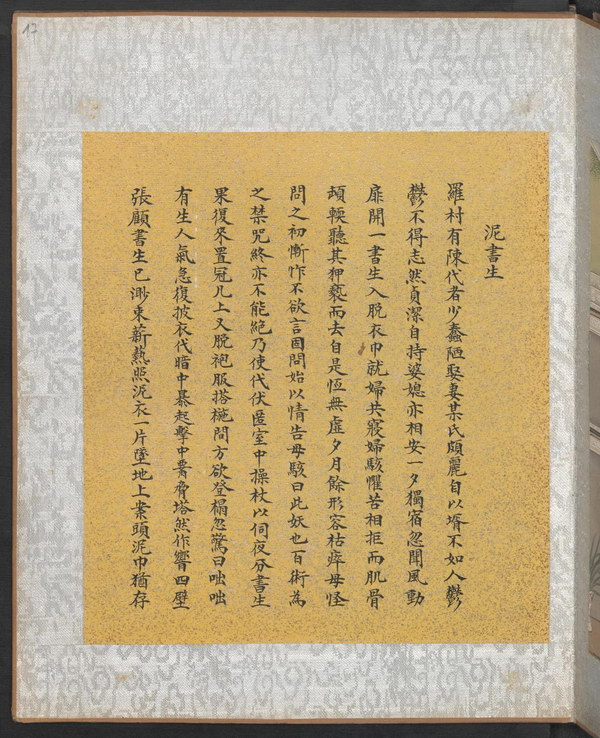 17
泥書生
羅村有陳代者少蠢陋娶妻某氏頗麗自以壻不如人鬱
鬱不得志然貞潔自持婆媳亦相安一夕獨宿忽聞風動
扉開一書生入脱衣巾就婦共寢婦駭懼苦相拒而肌骨
頓輭聽其狎褻而去自是恆無虛夕月餘形容枯瘁母怪
問之初慚怍不欲言固問始以情告母駭曰此妖也百術為
之禁咒終亦不能絶乃使代伏匿室中操杖以伺夜分書生
果復來置冠几上又脱袍服搭椸間方欲登榻忽驚曰咄咄
有生人氣急復披衣代暗中暴起擊中腰脅塔然作響四壁
張顧書生已渺束薪爇照泥衣一片墮地上案頭泥巾猶存